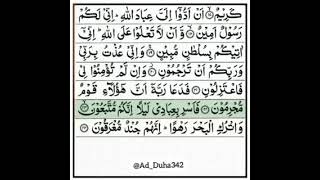 كَرِيْمٌ ۙ اَنْ اَدُّوْۤا اِلَیَّ عِبَادَ اللّٰهِ ؕ اِنِّیْ لَكُمْ
رَسُوْلٌ اَمِیْنٌ ۙ وَّ اَنْ لَّا تَعْلُوْا عَلَی اللّٰهِ ۚ اِنِّیْۤ
اٰتِیْكُمْ بِسُلْطٰنٍ مُّبِیْنٍ ۚ وَ اِنِّیْ عُذْتُ بِرَبِّیْ
وَ رَبِّكُمْ اَنْ تَرْجُمُوْنِ ۚ وَ اِنْ لَّمْ تُؤْمِنُوْا لِیْ
فَاعْتَزِلُوْنِ فَدَعَا رَبَّهٗۤ اَنَّ هٰۤؤُلَآءِ قَوْمٌ
مُّجْرِمُوْنَ فَاَسْرِ بِعِبَادِیْ لَیْلًا اِنَّكُمْ مُّتَّبَعُوْنَ ۙ
وَ اتْرُكِ الْبَحْرَ رَهْوًا ؕ اِنَّهُمْ جُنْدٌ مُّغْرَقُوْنَ
@Ad_Duha342